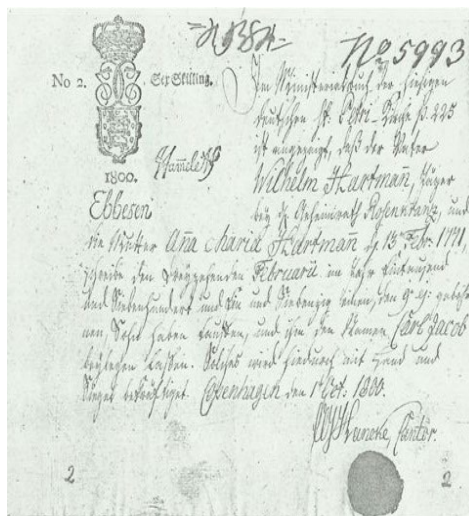 No 5993
No 2. Sex Skilling.
Im Ministerialbuch der hiesigen
deutschen St. Petri-Kirche p. 225
ist angezeigt, daß der Vater
1800.
Wilhelm Hartmañ, Jäger
Ebbesen
bey Geheimrath Rosenkrantz, und
die Mutter Aña Maria Hartmañ d. 13 Febr. 1771,
schreibe den dreyzehenden Februarii im Jahr Eintausend
und Siebenhundert und Ein und Siebenzig einen, den 9
nen, Sohn haben tauffen, und ihm den Namen Carl Jacob
beylegen lassen. Solches wird hiedurch mit Hand und
Siegel bekräftiget. Copenhagen den 1 Oct. 1800.
Cantor.
2 2